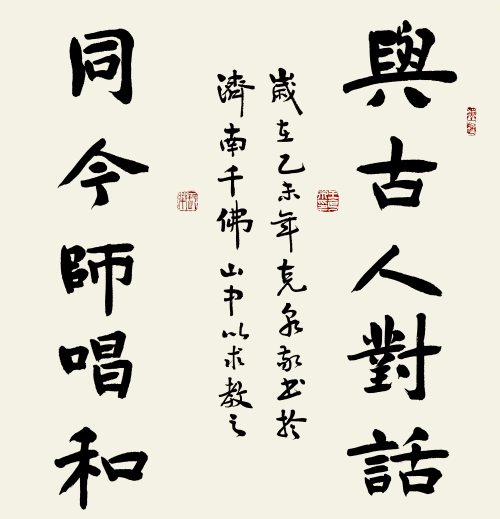 與古人對話
歲在乙未年克泉敬書於
濟南千佛山中以求教之
同今師唱和